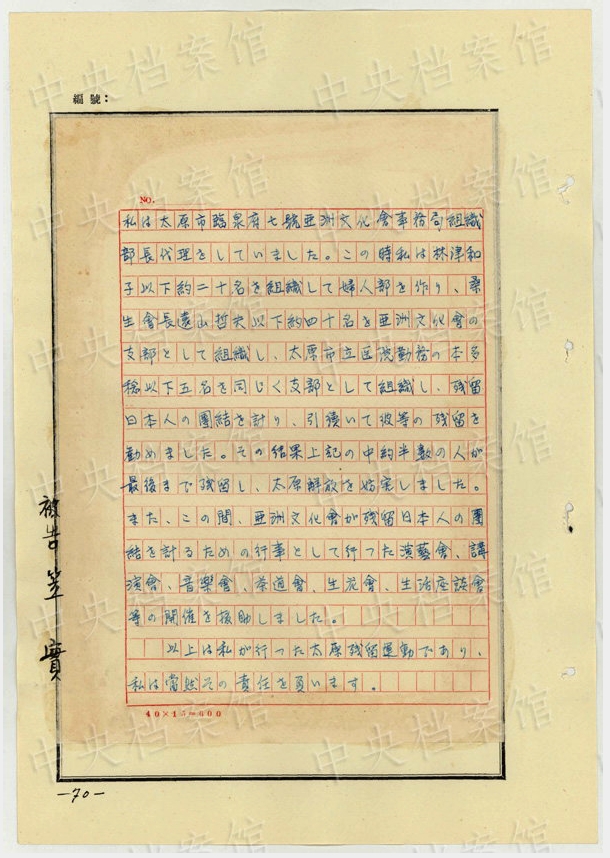 編號：
NO.
私は太原市臨泉府七號亜洲文化會事務局組織
部長代理をしていました。この時私は林津和
子以下約二十名を組織して婦人部を作り、桑
生會長遠山哲夫以下約四十名を亜洲文化會の
支部として組織し、太原市立医院勤務の本多
稔以下五名を同じく支部として組織し、残留
日本人の團結を計り、引續いて彼等の残留を
勧めました。その結果上記の中約半数の人が
最後まで残留し、太原解放を妨害しました。
また、この間、亜洲文化會が残留日本人の團
結を計るための行事として行った演藝會、講
演會、音楽會、茶道會、生花會、生活座談會
等の開催を援助しました。
以上は私が行った太原残留運動であり、
私は當然その責任を負います。
40×15=600
被告 笠 實
—70—
中央档案馆